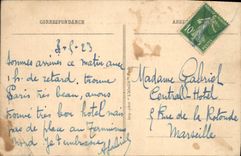 CORRESPONDANCE
8-5-23
sommes arrivés ce matin avec
1 h. de retard. trouvé
Paris très beau, avons
trouvé très bon hôtel mais
pas de place au terminus
Nord je t'embrasse
Gabriel
Madame Gabriel
Central Hotel
Rue de la Rotonde
Marseille
10